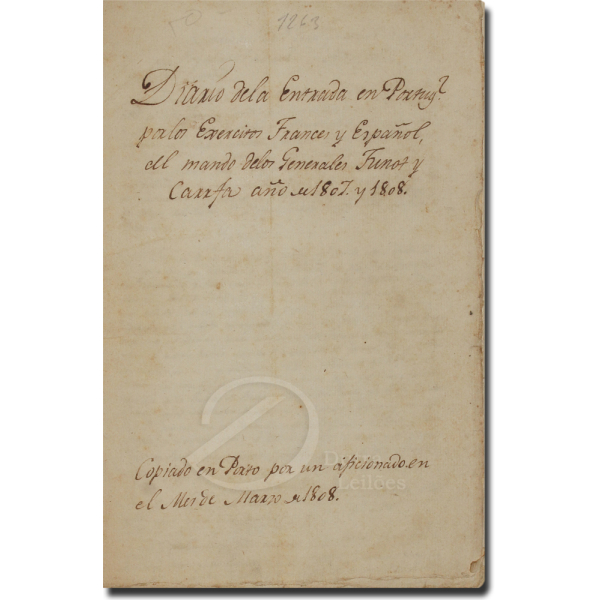 1263
Diario dela Entrada en Portugl.
por los Exercitos Frances y Español,
all mando delos Generales Junot y
Carrafa año de 1807. y 1808.
Copiado en Porto por un aficionado en
el Mes de Marzo de 1808.
Leilões